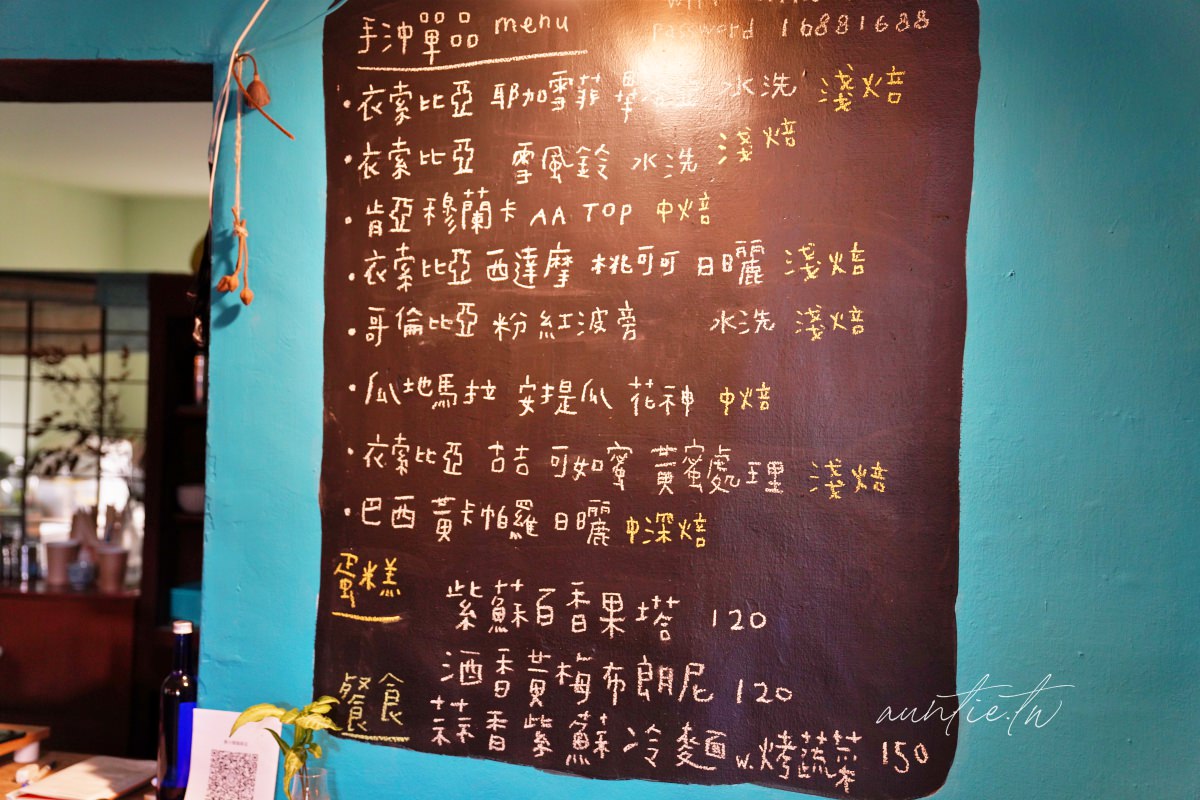 password 16881688
手沖單品 menu
·衣索比亞 耶加雪菲 水洗 淺焙
·衣索比亞 雪風鈴 水洗 淺焙
·肯亞穆蘭卡 AA TOP 中焙
·衣索比亞 西達摩 桃可可 日曬 淺焙
·哥倫比亞 粉紅波旁 水洗 淺焙
·瓜地馬拉 安提瓜 花神 中焙
·衣索比亞 古吉 可如蜜 黃蜜處理 淺焙
·巴西 黃卡帕羅 日曬 中深焙
蛋糕
紫蘇百香果塔 120
酒香黃梅布朗尼 120
餐食
蒜香紫蘇冷麵 w.烤蔬菜 150
auntie.tw